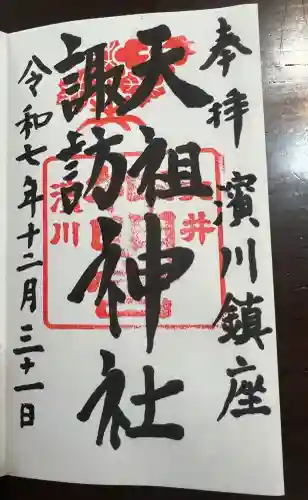 奉拝 濱川鎮座
天祖
諏訪
神社
令和七年十二月三十一日
濱川
井